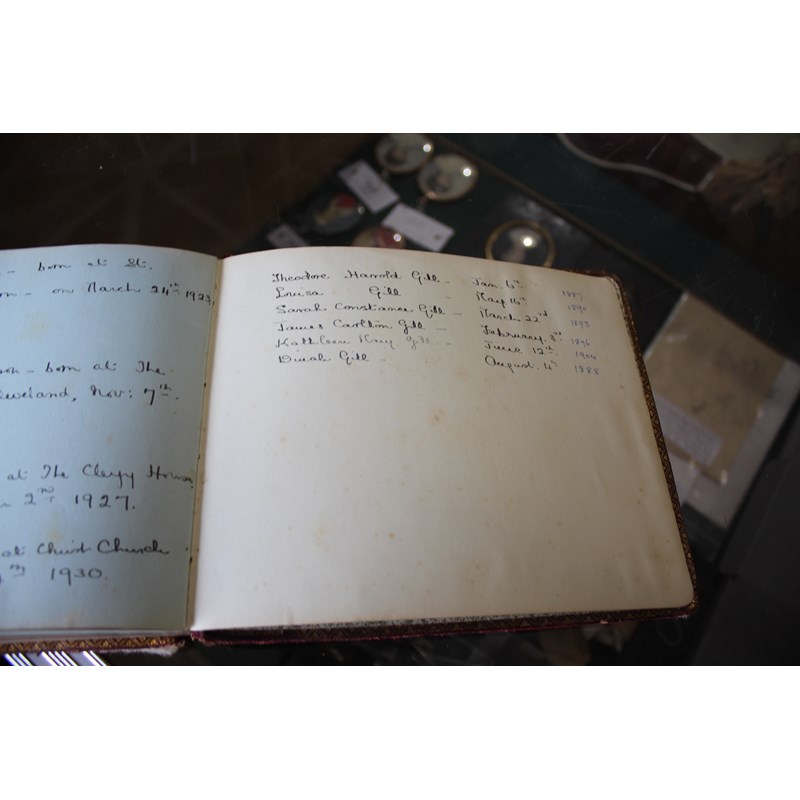 born at St.
on March 24th 1923,
born at The
eveland, Nov: 7th.
at The Clergy House
2nd 1927.
at Christ Church
1930.
Theodore Harrold Gill - Jan. 6th 1887
Louisa Gill - May 16th 1890
Sarah Constance Gill - March 22nd 1893
James Carlton Gill - February. 8th 1896
Kathleen May Gill - June 12th. 1904
Dinah Gill - August. 4th 1888